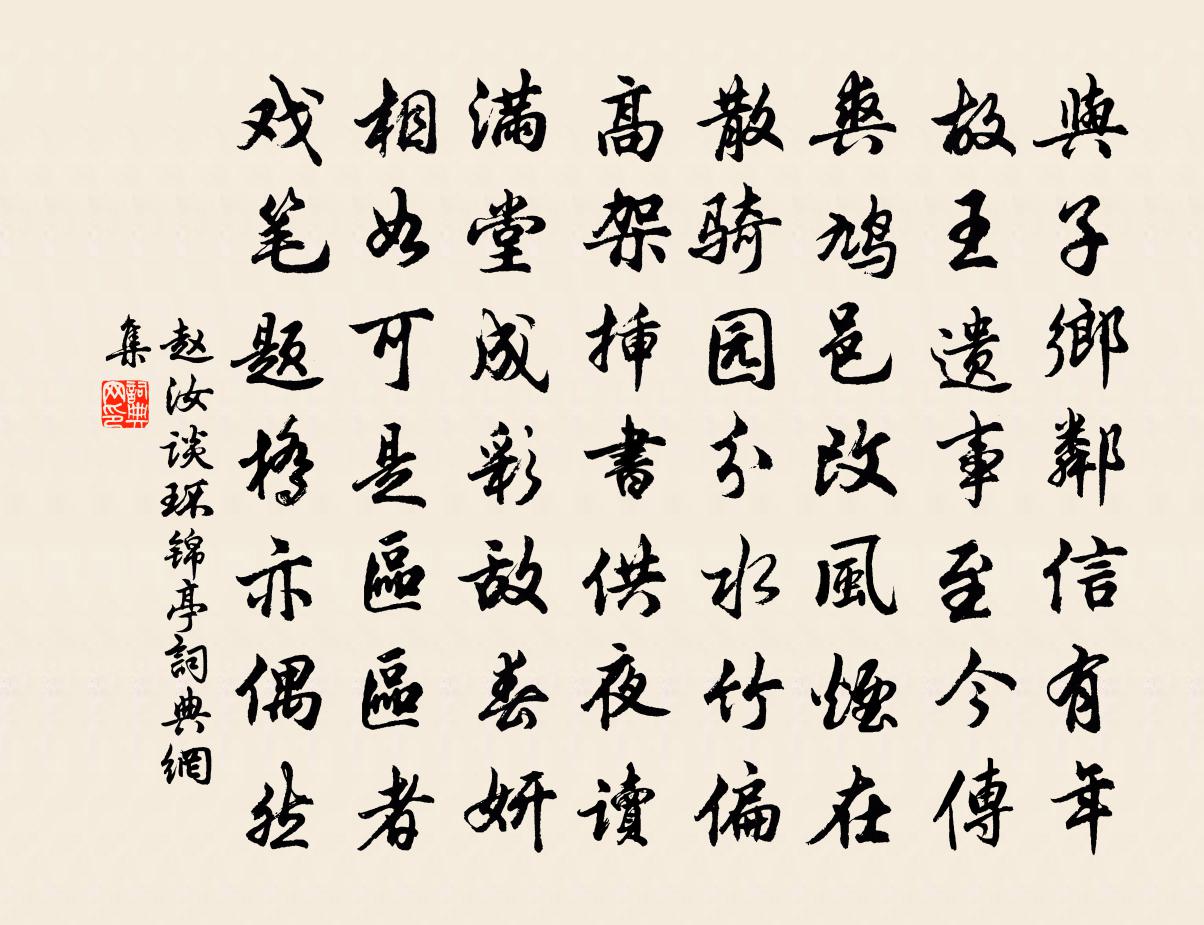 與子鄉鄰信有年
故王遗事至今傳
爽鸠邑改風煙在
散骑园分水竹偏
高架插書供夜讀
满堂成彩敌春妍
相如可是區區者
戏笔题桥亦偶然
赵汝谈环锦亭詞典網
集
詞典网印